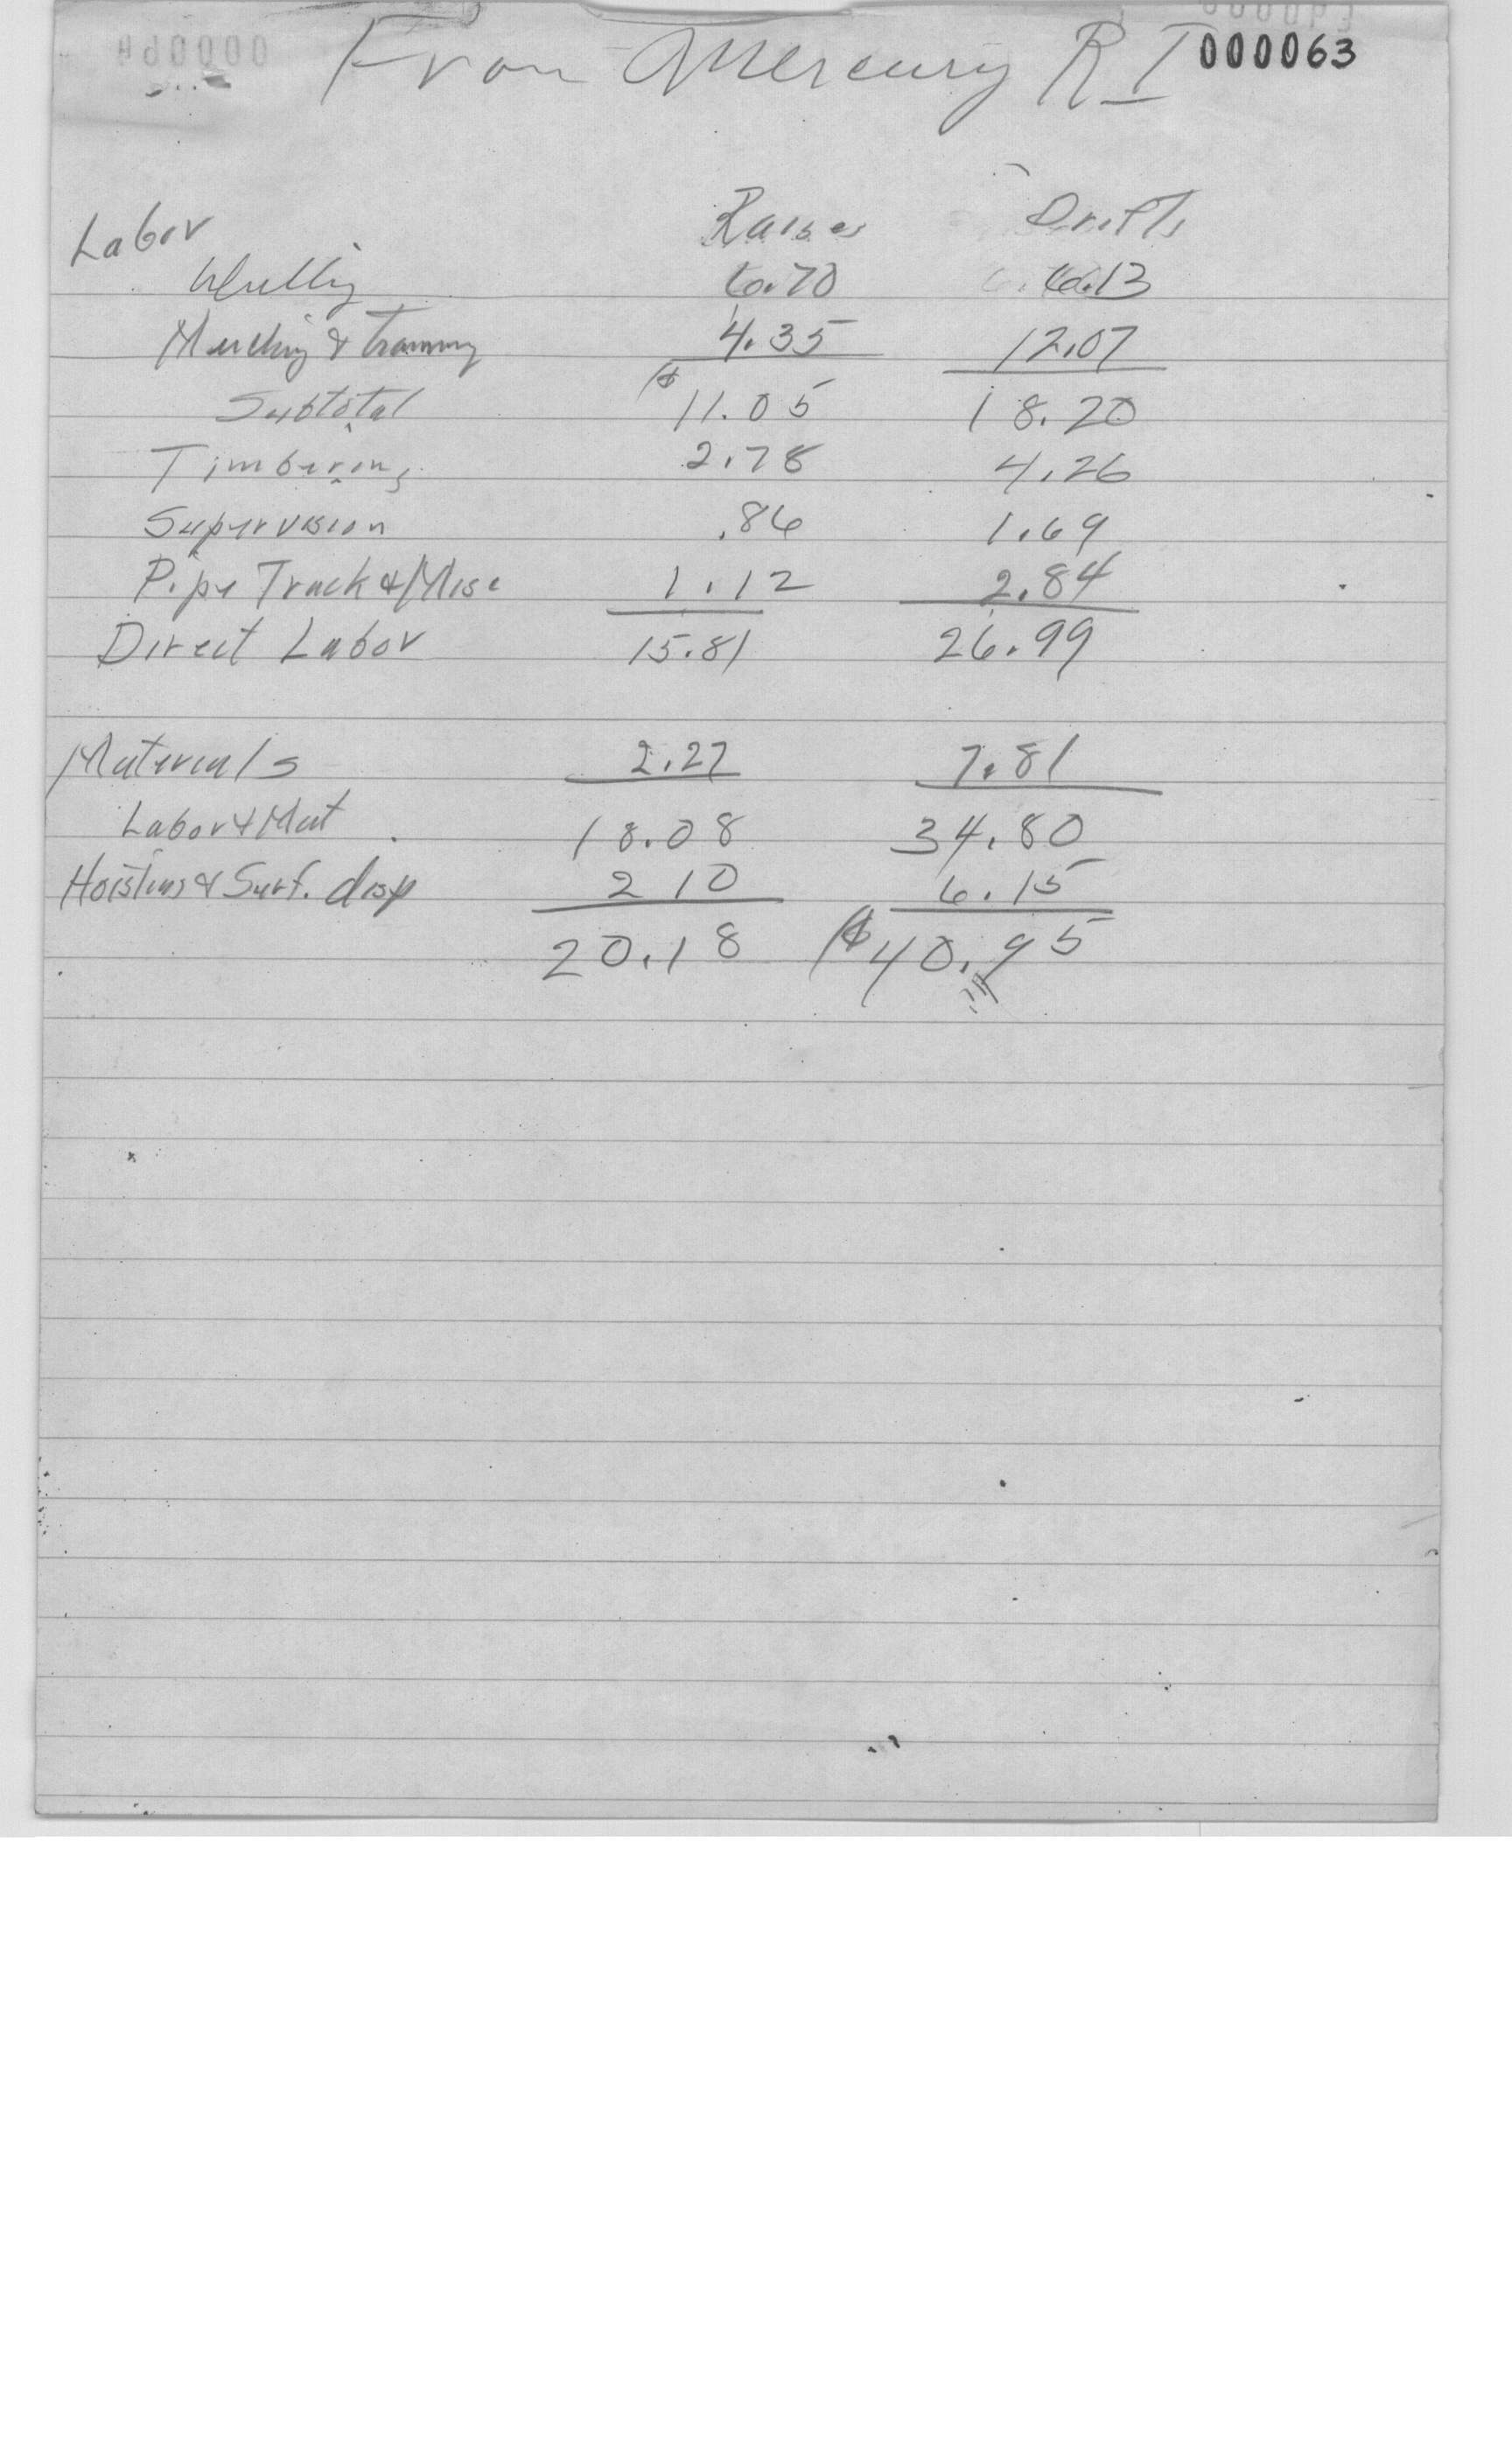 From Mercury RI 000063
Labor Raises Drifts
Drilling 6.70 6.13
Mucking & Tramming 4.35 12.07
Subtotal $11.05 18.20
Timbering 2.78 4.26
Supervision .86 1.69
Pipe Track & Misc 1.12 2.84
Direct Labor 15.81 26.99
Materials 2.27 7.81
Labor & Mat 18.08 34.80
Hoisting & Surf. disp 2 10 6.15
20.18 $40.95